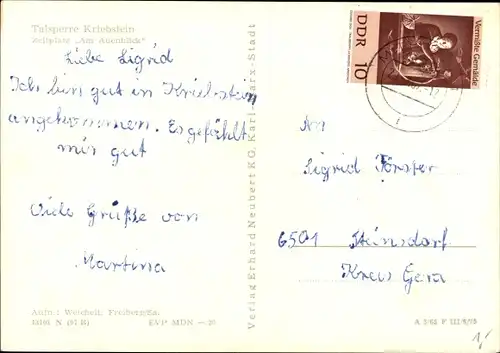 Talsperre Kriebstein
Zeltplatz „Am Auenblick“
Liebe Sigrid
Ich bin gut in Kriebstein
angekommen. Es gefählt
mir gut
Viele Grüße von
Martina
Aufn.: Weichelt, Freiberg/Sa.
N (97 B) EVP MDN —.20
Verlag Erhard Neubert KG, Karl-Marx-Stadt
Vermißte Gemälde
DDR 10
An
Sigrid Förster
6501 Steinsdorf
Kreis Gera